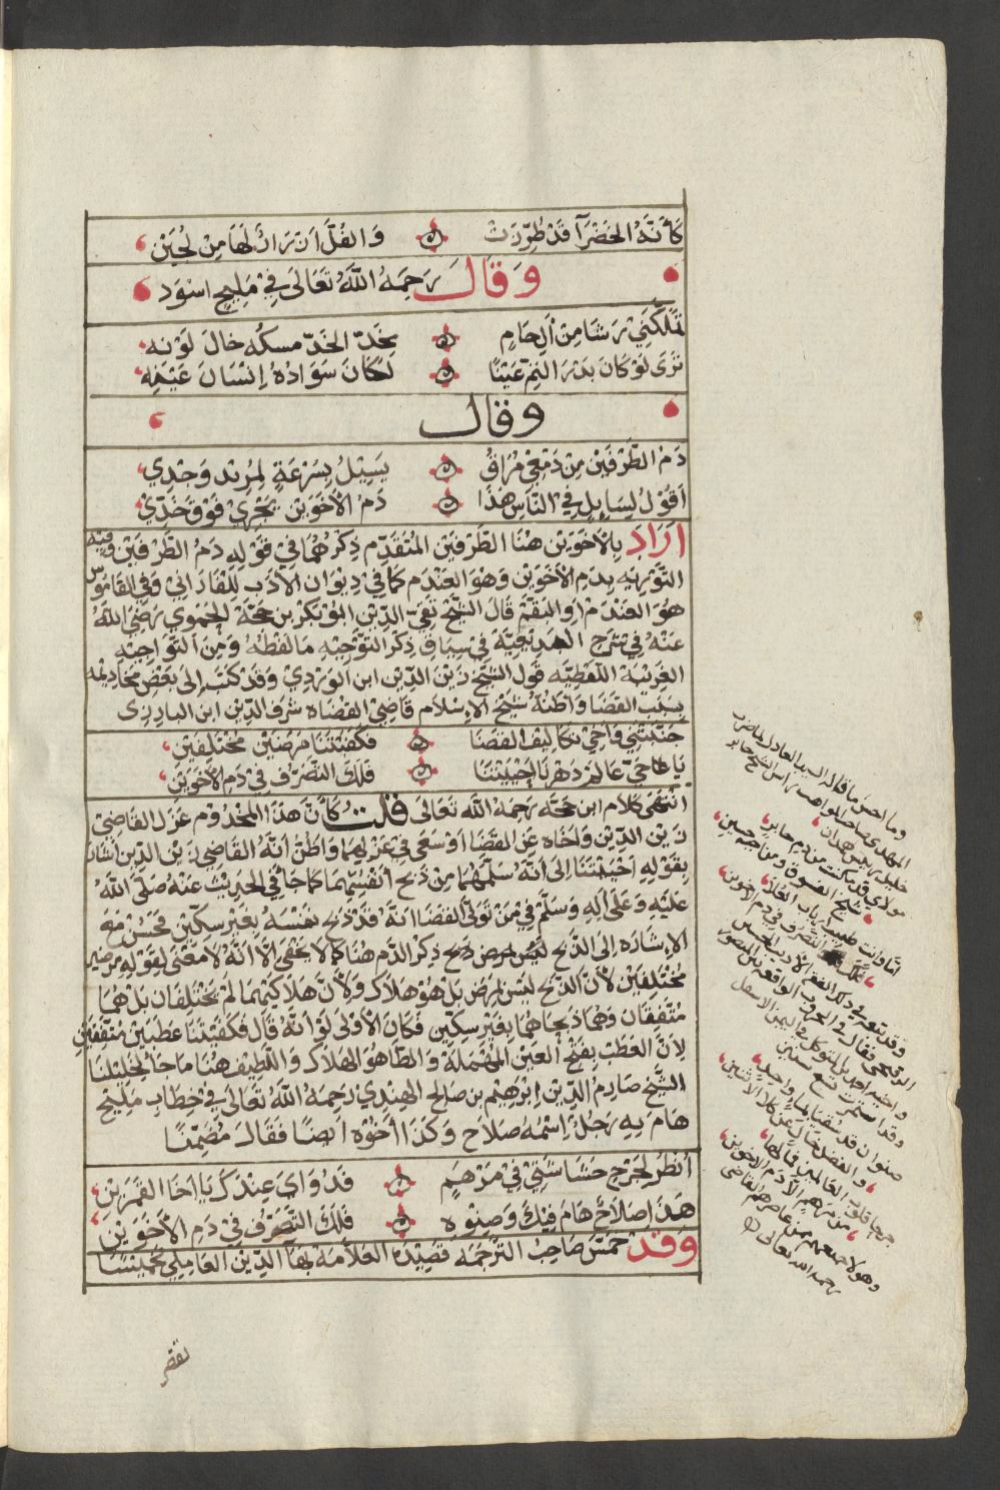 كَأَنَّهُ الخَضْرَآ قَدْ طُرِّزَتْ وَالفُلّ اَزرَارٌ لَهَا مِنْ لُجَيْنِ
وَقَالَ رَحِمَهُ اللَّهُ تَعَالَى فِي مَلِيحٍ اسْوَد
تَمَلَّكَنِيْ رَشَا مِنْ اٰلِ حَامٍ بِخَدّ الخَدّ مسكه خال لَوْنِه
تَرَى لَوْ كَانَ بَدْرَ التِّمّ عَيْنًا لَكَانَ سَوَادُهُ إِنْسَانَ عَيْنِهِ
وقال
دَمُ الطَّرْفَيْنِ مِنْ دَمْعِيْ مُرَاقٌ يَسِيْلُ بِسُرْعَةٍ لِمزيد وَجْدِي
اَقُوْلُ لِسَايِلٍ فِي النَّاسِ هٰذَا دَمُ الأَخَوَيْنِ يَجْرِيْ فَوْقَ خَدِّيْ
اَرَادَ بِالأخَوَيْنِ هُنَا الطَّرْفَيْنِ المُتَقَدِّم ذِكْرُهُمَا فِيْ قَوْلِهِ دَمُ الطَّرْفَيْنِ وَفِيْه
التَّوْرِيَه بِدَمِ الأَخَوَيْنِ وَهْوَ العَنْدَم كَمَا فِي دِيْوَانِ الأدَبِ لِلْفَارَابِي وَفِي القَامُوس
هُوَ العَنْدَمُ او البَقَّم قَالَ الشَّيْخ تَقِيّ الدِّيْن ابُوْ بَكْر بن حجّة الحَمَوِي رَضِيَ اللَّهُ
عَنْهُ فِيْ شَرْحِ البَدِيْعِيَّة فِيْ سِيَاقِ ذِكْرِ التَّوْجِيْهِ مَا لَفْظُهُ وَمِنَ التَّوَاجِيْهِ
الغَرِيْبَة اللَّفظِيَّه قَوْل الشَّيْخ زَيْن الدِّيْن ابن الوَرْدِيْ وَقَدْ كتبَ إِلَى بَعْضِ مخَادِيْمه
بِسَبَب القَضَا وَاَظنّهُ شَيْخ الاِسْلَام قَاضِيْ القُضَاه شَرَف الدِّيْن ابن البارزى
جَنَّبْتَنِيْ وَاَخِيْ تكَاليْفَ القَضَا فَكَفَيْتَنَا مَرَضَيْنِ مُخْتَلِفَيْنِ
يَا حَيّ عَالم دَهْرنَا اَحْيَيْتَنَا فَلَكَ التَّصَرُّفُ فِيْ دَمِ الأَخَوَيْنِ
انْتَهَى كَلَام ابن حجّة رَحِمَهُ اللَّه تَعَالَى قُلْتُ كَاَنَّ هٰذَا المَخْدُوْم عَزَل القَاضِيْ
زَيْن الدِّيْن وَاَخَاه عَنِ القَضَا اَوْ سَعَى فِيْ عَزْلِهِمَا وَاَظنُّ اَنَّهُ القَاضِيْ زَيْن الدِّيْن اَشَارَ
بِقَوْلِهِ اَحْيَيْتَنَا إِلَى أَنَّهُ سَلَّمَهُمَا مِنْ ذَبْحِ اَنْفُسِهِمَا كَمَا جَآ فِي الحَدِيْثِ عَنْهُ صَلَّى اللَّهُ
عَلَيْهِ وَعَلَى اٰلِهِ وَسَلَّمَ فِيْ مَنْ تَوَلَّى القَضَا اَنَّه قَدْ ذَبَحَ نَفْسَهُ بِغَيْرِ سِكِّيْنٍ فَحَسُنَ مَعَ
الاِشَارَه اِلَى الذَّبْح ذِكْر الدَّم هُنَا كَمَا لاَ يَخْفَى اِلَّا اَنَّهُ لاَ مَعْنَى لِقَوْلِهِ مرضين
مُخْتَلِفَيْنِ لأَنَّ الذَّبْح لَيْسَ بمرَض بَلْ هُوَ هَلاَك وَلأَنَّ هَلاَكَيْهِمَا لَمْ يَخْتَلِفَان بَلْ هُمَا
مُتَّفِقَان وَهُمَا ذَبحَاهُمَا بِغَيْرِ سِكِّيْنٍ فَكَانَ الأَوْلَى لَوْ اَنَّهُ قَالَ فَكَفَيْتَنَا عَطَبَيْنِ مُتَّفِقَيْنِ
لأَنَّ العَطَبَ بِفَتْحِ العَيْن المُهْمَلَة وَالطَّا هُوَ الهَلاَك وَاللَّطِيْف هُنَا مَا جَآ لِخَلِيْلِنَا
الشَّيْخ صَارِم الدِّيْن إِبْرَهِيْم بن صَالِح الهِنْدِيْ رَحِمَهُ اللَّهُ تَعَالَى فِيْ خِطَابِ مَلِيْحٍ
هَامَ بِهِ رَجُلٌ إِسْمُهُ صَلاَح وَكَذَا اَخُوْه اَيْضًا فَقَالَ مُضَمِّنًا
اُنْظُرْ لِجرْحِ حَشَاشَتِيْ فِيْ مَرْهَمٍ قَدْ دَوَاي عِنْدَكَ يَا اَخَا القَمَرَيْنِ
هٰذَا صَلاَحٌ هَامَ فِيْكَ وَصِنْوُهُ فَلَكَ التَّصَرُّفُ فِيْ دَمِ الأَخَوَيْنِ
وَقَدْ خمّسَ صَاحِبُ التَّرْجَمَه قَصِيْدَة العَلاَّمَة بَهآ الدِّيْن العَامِلِيْ تَخْمِيْسًا
وما احسن ما قاله السيد العادل
المهدي صاحب المواهب
مولاي قد مكنت من دم جابر
شيخ الفسوق ومن اخيه حسين
اما وانت طبيب ارباب العلا
فلك التصرف في دم الاخوين
وهولا جميعهم من عاصرهم القاضي
رحمه الله تعالى